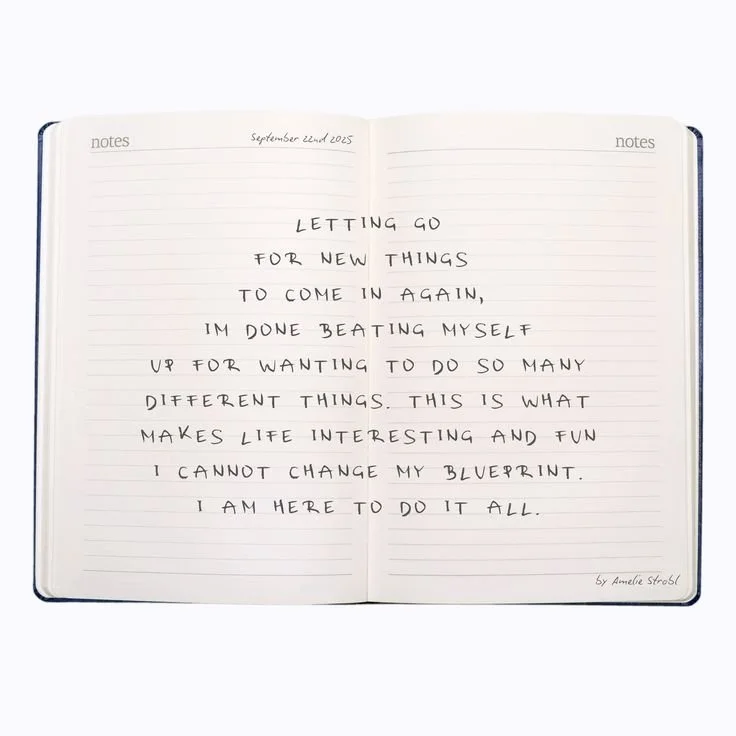 notes September 22nd 2025 notes
LETTING GO
FOR NEW THINGS
TO COME IN AGAIN,
IM DONE BEATING MYSELF
UP FOR WANTING TO DO SO MANY
DIFFERENT THINGS. THIS IS WHAT
MAKES LIFE INTERESTING AND FUN
I CANNOT CHANGE MY BLUEPRINT.
I AM HERE TO DO IT ALL.
by Amelie Strobl